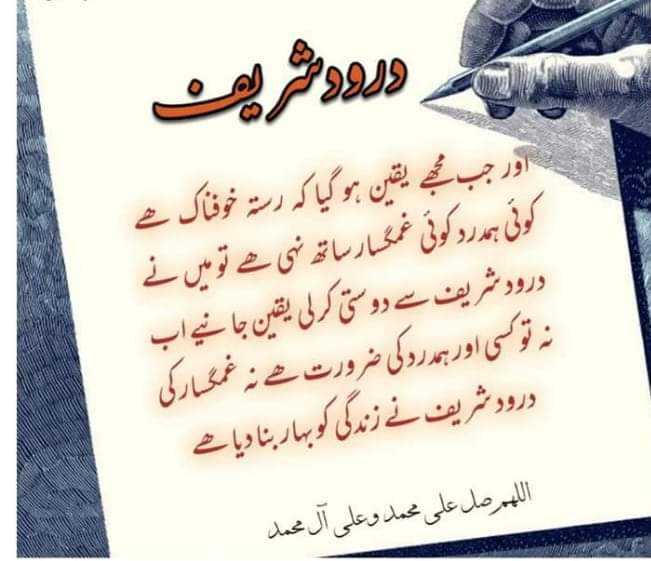 درود شریف
اور جب مجھے یقین ہو گیا کہ رستہ خوفناک ھے
کوئی ہمدرد کوئی غمگسار ساتھ نہی ھے تو میں نے
درود شریف سے دوستی کر لی یقین جانیے اب
نہ تو کسی اور ہمدرد کی ضرورت ھے نہ غمگسار کی
درود شریف نے زندگی کو بہار بنا دیا ھے
اللهم صل علی محمد وعلی آل محمد